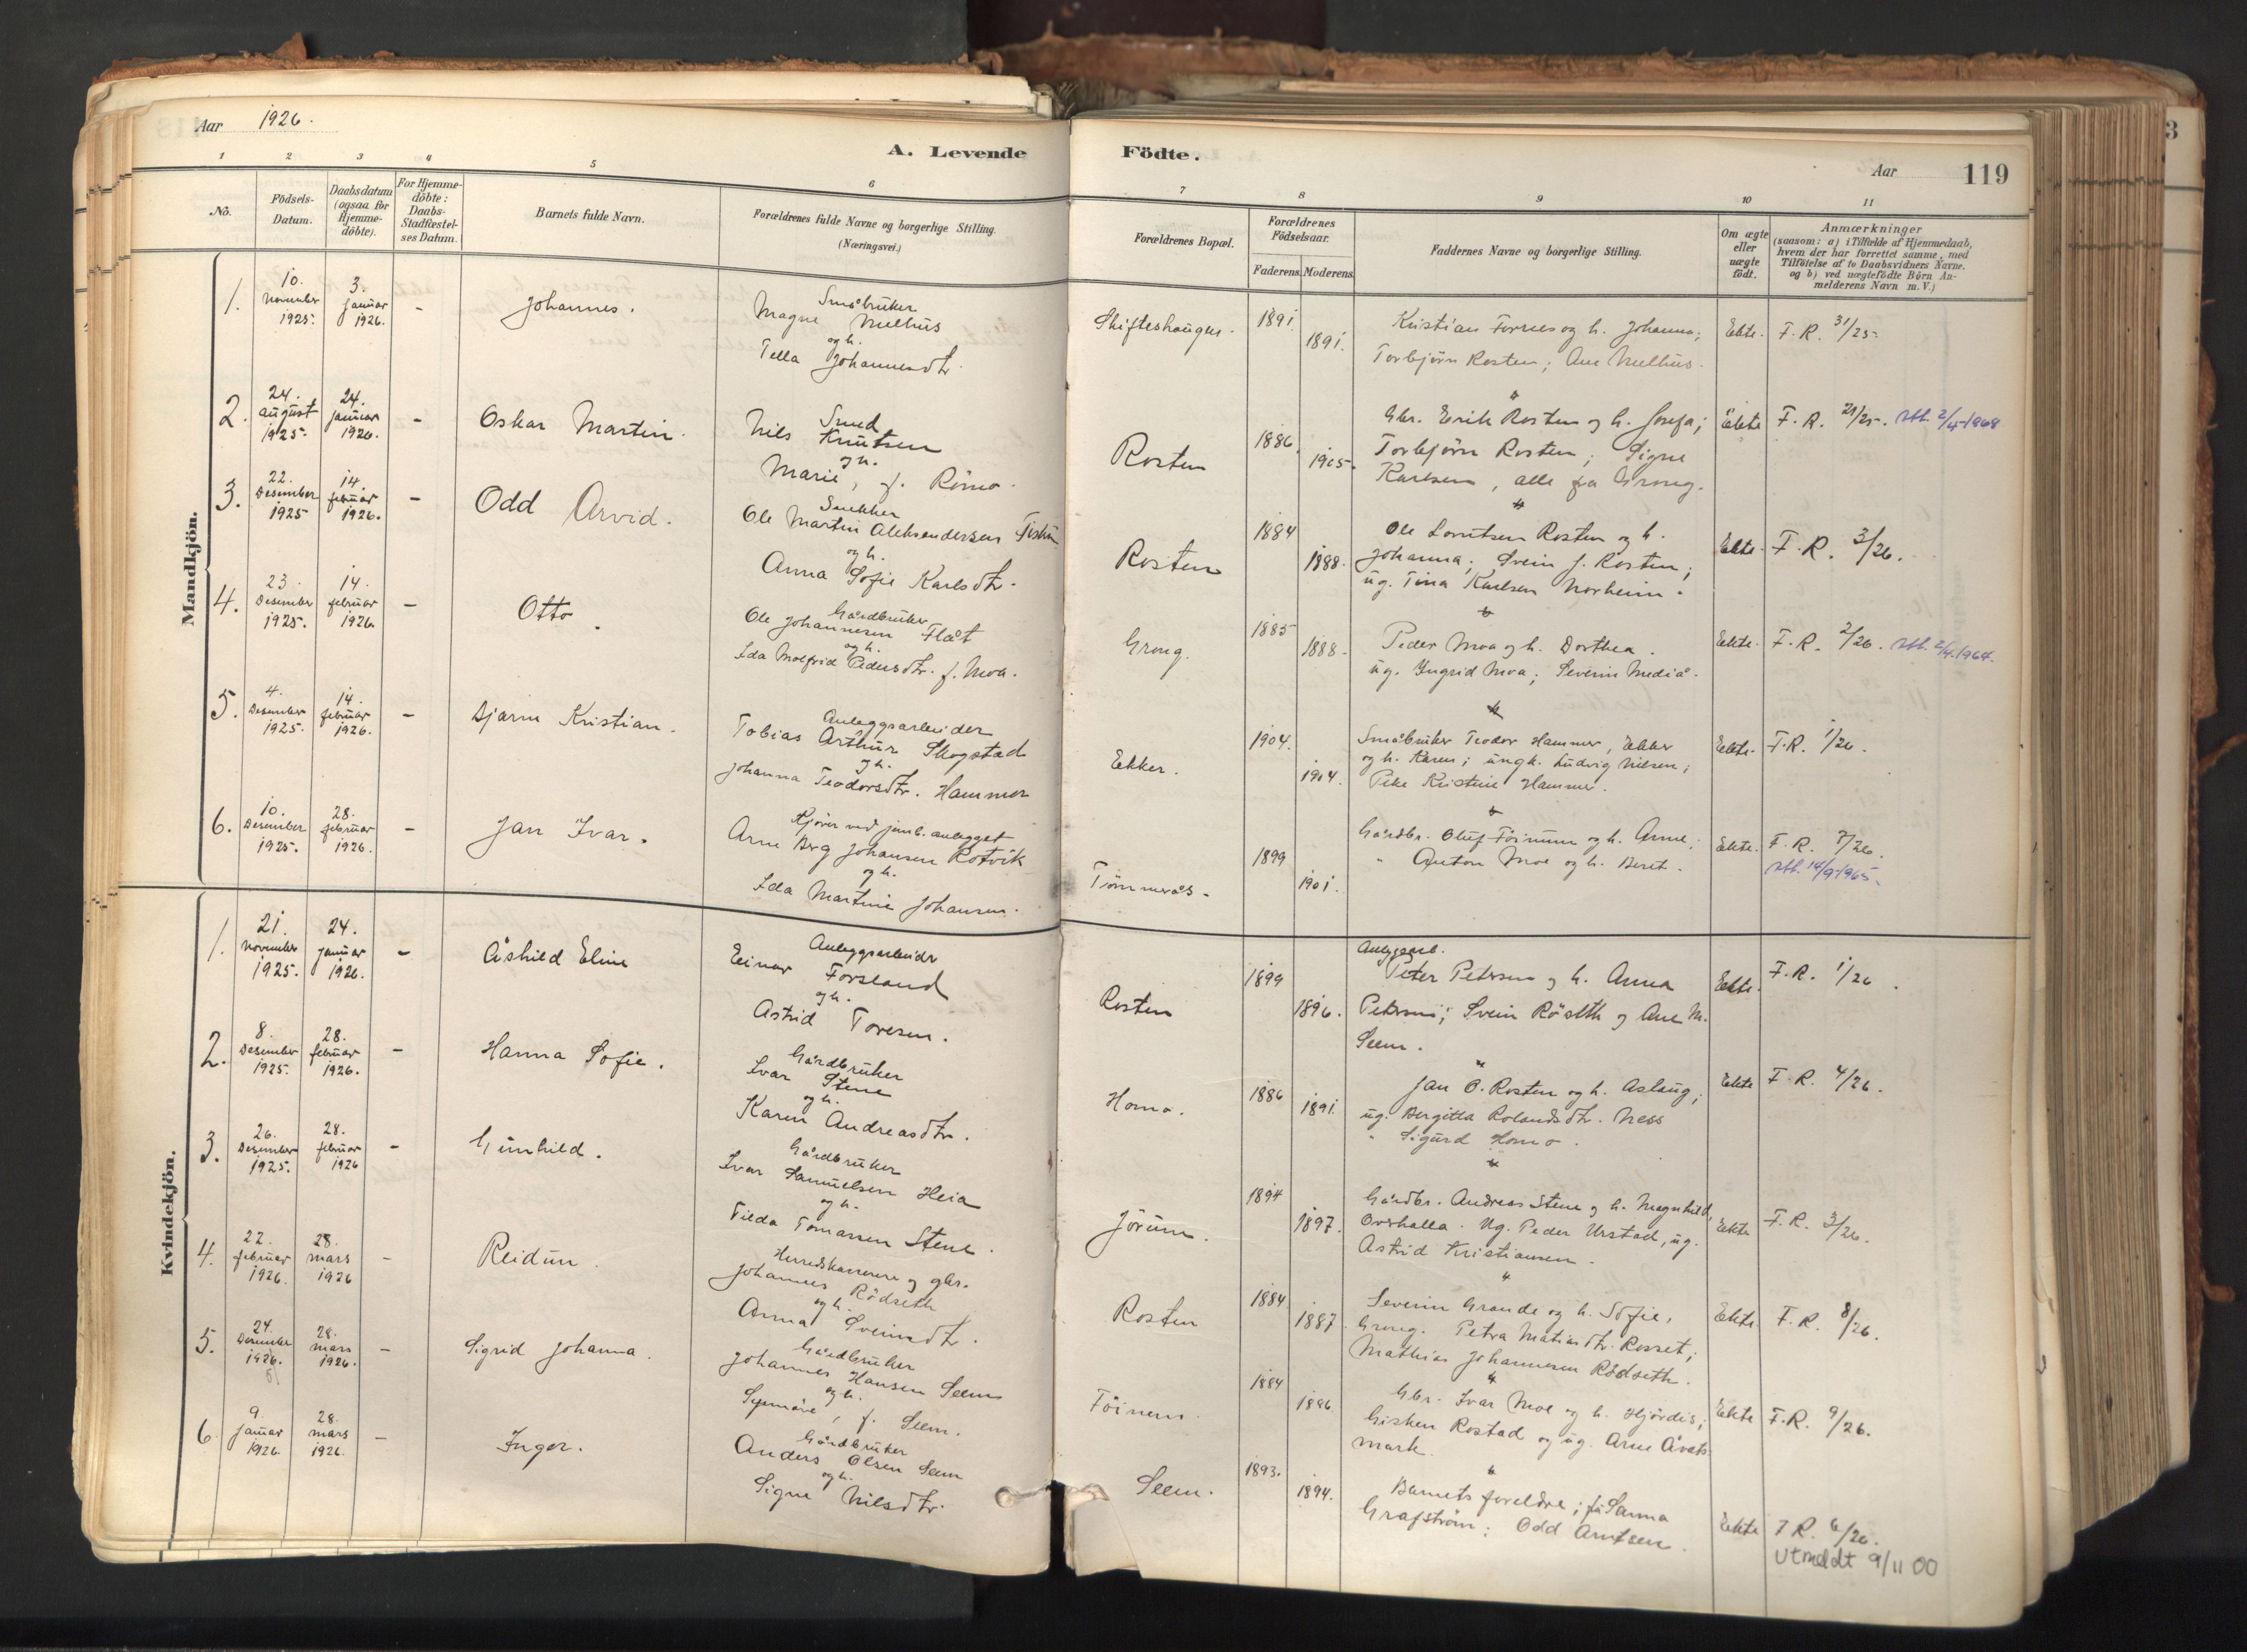 Aar 1926.
A. Levende
Födte.
Aar
119
1
2
3
4
5
6
7
8
9
10
11
No.
Födsels-
Datum.
Daabsdatum
(ogsaa for
Hjemme-
döbte).
For Hjemme-
döbte:
Daabs-
Stadfæstel-
ses Datum.
Barnets fulde Navn.
Forældrenes fulde Navne og borgerlige Stilling.
(Næringsvei.)
Forældrenes Bopæl.
Forældrenes
Födselsaar.
Faderens.
Moderens.
Faddernes Navne og borgerlige Stilling.
Om ægte
eller
uægte
födt.
Anmærkninger
(saasom: a) i Tilfælde af Hjemmedaab,
hvem der har forrettet samme, med
Tilföielse af to Daabsvidners Navne,
og b) ved uægtefödte Börn An-
melderens Navn m. V.)
Mandkjön.
1.
10.
November
1925.
3.
Januar
1926.
-
Johannes.
Småbruker
Magne Melhus
og h.
Tella Johannesdtr.
Skifteshaugen.
1891.
1891.
Kristian Formes og h. Johanna;
Torbjörn Rosten; Ane Melhus.
Ekte.
F. R. 31/25
2.
24.
August
1925.
24.
Januar
1926.
-
Oskar Martin.
Smed
Nils Knutsen
og h.
Marie, f. Römo.
Rosten
1886.
1905.
Gbr. Erik Rosten og h. Josefa;
Torbjörn Rosten; Signe
Karlsen, alle fra Grong.
Ekte
F. R. 21/25. Utt. 2/4-1968
3.
22.
Desember
1925
14.
februar
1926.
-
Odd Arvid.
Snekker
Ole Martin Aleksendersen
og h.
Anna Sofie Karlsdtr.
Rosten
1884
1888.
Ole Lorntsen Rosten og h.
Johanna; Svein J. Rosten;
ug. Tina Karlsen Norheim.
Ekte.
F. R. 3/26.
4.
23.
Desember
1925.
14.
februar
1926.
-
Otto.
Gårdbruker
Ole Johannesen Flåt
og h.
Ida Molfrid Pedersdtr. f. Moa.
Grong.
1885
1888.
Peder Moa og h. Dorthea.
ug. Ingrid Moa; Severin Mediå.
Ekte.
F. R. 2/26. Utt. 2/4.1964.
5.
4.
Desember
1925.
14.
februar
1926.
-
Bjarne Kristian.
Anleggsarbeider
Tobias Arthur Skogstad
og h.
Johanna Teodorsdtr. Hammer
Ekker.
1904.
1904.
Småbruker Teodor Hammer, Ekker
og h. Karen; ungk. Ludvig Nilsen;
Pike Kristine Hammer.
Ekte.
F. R. 1/26.
6.
10.
Desember
1925.
28.
februar
1926.
-
Jan Ivar.
Kjörer ved jernb. anlegget
Arne Berg Johansen Rotvik
og h.
Ida Martine Johansen.
Tömmerås.
1899
1901.
Gårdbr. Oluf Föinum og h. Anne;
" Anton Moe og h. Beret.
Ekte.
F. R. 7/26.
Utt. 14/9-1965.
Kvindekjön.
1.
21.
November
1925.
24.
Januar
1926.
-
Åshild Eline
Anleggsarbeider
Einar Forsland
og h.
Astrid Toresen.
Rosten
1899
1896.
Anleggsarb.
Peter Petersen og h. Anna
Petersen; Svein Rödseth og Ane M.
Seem.
Ekte.
F. R. 1/26.
2.
8.
Desember
1925.
28.
februar
1926.
-
Hanna Sofie.
Gårdbruker
Ivar Stene
og h.
Karen Andreasdtr.
Homo.
1886
1891.
Jan O. Rosten og h. Aslaug;
ug. Bergitta Rolandsdtr. Ness
" Sigurd Homo.
Ekte
F. R. 4/26.
3.
26.
Desember
1925.
28.
februar
1926
-
Gunhild.
Gårdbruker
Ivar Samuelsen Heia
og h.
Tilda Tomassen Stene.
Jörum.
1894
1897.
Gårdbr. Andreas Stene og h. Magnhild,
Overhalla. Ug. Peder Urstad, ug.
Astrid Kristiansen.
Ekte
F. R. 3/26.
4.
22.
februar
1926.
28.
mars
1926
-
Reidun.
Herredskasserer og gbr.
Johannes Rödseth
og h.
Anna Sveinsdtr.
Rosten
1884
1887
Severin Grande og h. Sofie,
Grong. Petra Matiasdtr. Rosset;
Mathias Johannesen Rödseth.
Ekte.
F. R. 8/26.
5.
24.
Desember
1926.
5
28.
mars
1926.
-
Sigrid Johanna.
Gårdbruker
Johannes Hansen Seem
og h.
f. Seem.
Föinum.
1884
1886
Gbr. Ivar Moe og h. Hjördis;
Gisken Rostad og ug. Arne Åvats-
mark.
Ekte
F. R. 9/26.
6.
9.
Januar
1926
28.
mars
1926.
-
Inger.
Gårdbruker
Anders Olsen Seem
og h.
Signe Nilsdtr.
Seem.
1893.
1894.
Barnets foreldre; frk Sanna
Grafström; Odd Arntsen.
Ekte
F. R. 6/26.
Utmeldt 9/11 00
3